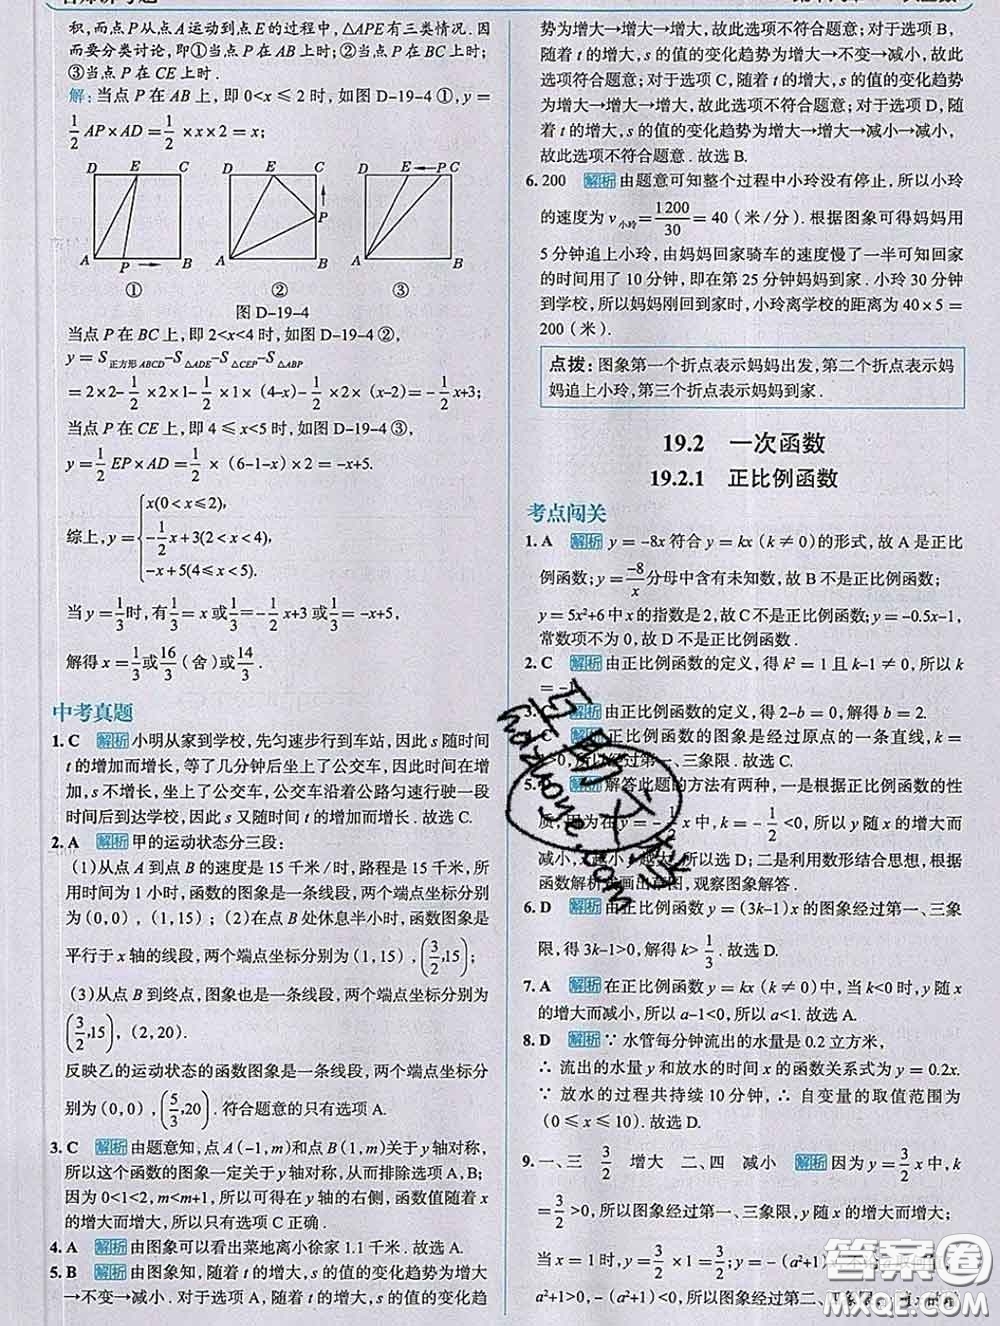 积,而点P从点A运动到点E的过程中,△APE有三类情况.因
而要分类讨论,即①当点P在AB上时;②当点P在BC上时;
③当点P在CE上时.
解:当点P在AB上,即0<x≤2时,如图D-19-4①,y=
1/2 AP×AD=1/2×x×2=x;
D E C D E C D E P C
A P B A B P A B
① ② ③
图D-19-4
当点P在BC上,即2<x<4时,如图D-19-4②,
y=S正方形ABCD-S△ADE-S△CEP-S△ABP
=2×2-1/2×2×1-1/2×1×(4-x)-1/2×2×(x-2)=-1/2x+3;
当点P在CE上,即4≤x<5时,如图D-19-4③,
y=1/2 EP×AD=1/2×(6-1-x)×2=-x+5.
x(0<x≤2),
综上,y= -1/2x+3(2<x<4),
-x+5(4≤x<5).
当y=1/3时,有1/3=x或1/3=-1/2x+3或1/3=-x+5,
解得x=1/3或16/3(舍)或14/3.
中考真题
1. C 解析 小明从家到学校,先匀速步行到车站,因此s随时间
t的增加而增长,等了几分钟后坐上了公交车,因此时间在增
加,s不增长,坐上了公交车,公交车沿着公路匀速行驶一段
时间后到达学校,因此s又随时间t的增加而增长.故选C.
2. A 解析 甲的运动状态分三段:
(1)从点A到点B的速度是15千米/时,路程是15千米,所
用时间为1小时,函数的图象是一条线段,两个端点坐标分别
为(0,0),(1,15);(2)在点B处休息半小时,函数图象是
平行于x轴的线段,两个端点坐标分别为(1,15),(3/2,15);
(3)从点B到终点,图象也是一条线段,两个端点坐标分别为
(3/2,15),(2,20).
反映乙的运动状态的函数图象是一条线段,两个端点坐标分
别为(0,0),(5/3,20).符合题意的只有选项A.
3. C 解析 由题意知,点A(-1,m)和点B(1,m)关于y轴对称,
所以这个函数的图象一定关于y轴对称,从而排除选项A,B;
因为0<1<2,m<m+1,所以可得在y轴的右侧,函数值随着x
的增大而增大,所以只有选项C正确.
4. A 解析 由图象可以看出菜地离小徐家1.1千米.故选A.
5. B 解析 由图象知,随着t的增大,s的值的变化趋势为增大
→不变→减小.对于选项A,随着t的增大,s的值的变化趋
势为增大→增大→增大,故此选项不符合题意;对于选项B,
随着t的增大,s的值的变化趋势为增大→不变→减小,故此
选项符合题意;对于选项C,随着t的增大,s的值的变化趋势
为增大→增大→增大,故此选项不符合题意;对于选项D,随
着t的增大,s的值的变化趋势为增大→增大→减小→减小,
故此选项不符合题意.故选B.
6. 200 解析 由题意可知整个过程中小玲没有停止,所以小玲
的速度为v小玲=1200/30=40(米/分).根据图象可得妈妈用
5分钟追上小玲,由妈妈回家骑车的速度慢了一半可知回家
的时间用了10分钟,即在第25分钟妈妈到家.小玲30分钟
到学校,所以妈妈刚回到家时,小玲离学校的距离为40×5=
200(米).
点拨:图象第一个折点表示妈妈出发,第二个折点表示妈
妈追上小玲,第三个折点表示妈妈到家.
19.2 一次函数
19.2.1 正比例函数
考点闯关
1. A 解析 y=-8x符合y=kx(k≠0)的形式,故A是正比
例函数;y=-8/x分母中含有未知数,故B不是正比例函数;
y=5x²+6中x的指数是2,故C不是正比例函数;y=-0.5x-1,
常数项不为0,故D不是正比例函数.
2. C 解析 由正比例函数的定义,得k²=1且k-1≠0,所以
k=-1.
3. C 解析 由正比例函数的定义,得2-b=0,解得b=2.
解析 正比例函数的图象是经过原点的一条直线,k=
>0,所以图象经过第一、三象限.故选C.
5. 解析 解答此题的方法有两种,一是根据正比例函数的性
质,因为在y=-1/2x中,k=-1/2<0,所以y随x的增大而
减小,x越小,y越大,所以选D;二是利用数形结合思想,根据
函数解析式画出草图,观察图象解答.
6. D 解析 由正比例函数y=(3k-1)x的图象经过第一、三象
限,得3k-1>0,解得k>1/3.故选D.
7. A 解析 在正比例函数y=kx(k≠0)中,当k<0时,y随x
的增大而减小,所以a-1<0,所以a<1.故选A.
8. D 解析 ∵水管每分钟流出的水量是0.2立方米,
∴流出的水量y和放水的时间x的函数关系式为y=0.2x.
∵放水的过程共持续10分钟,∴自变量的取值范围为
(0≤x≤10).故选D.
9. 一、三 3/2 增大 二、四 减小 解析 因为y=3/2x中,k
=3/2>0,所以图象经过第一、三象限,y随x的增大而增大.
当x=1时,y=3/2×1=3/2;y=-(a²+1)
a²+1>0,-(a²+1)<0,所以图象经过第二、四象限,
答案圈